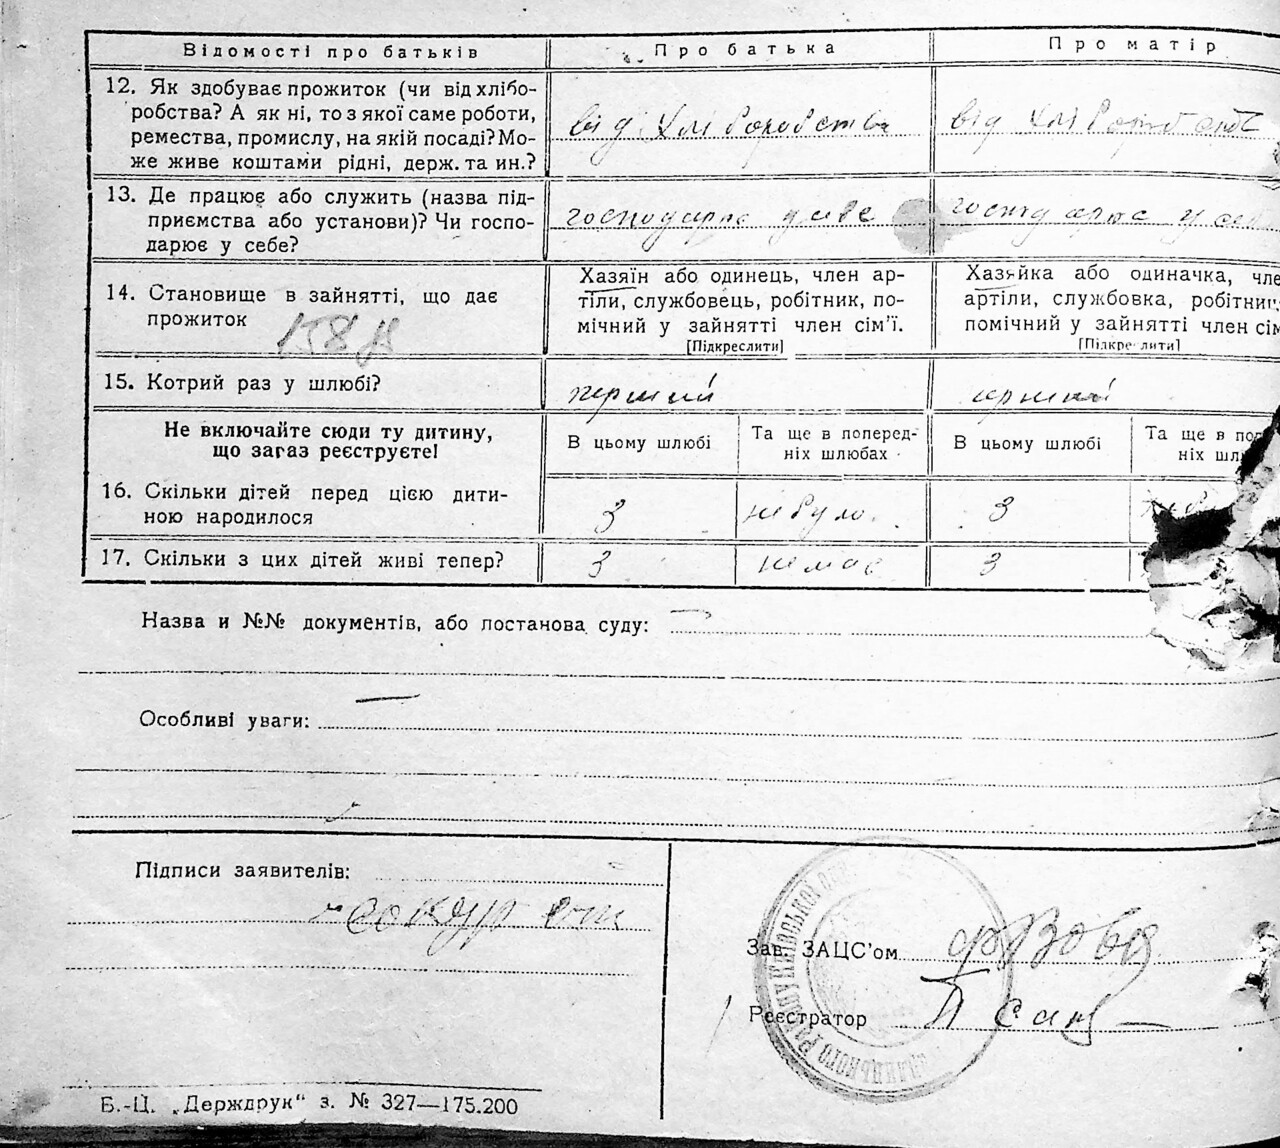 Відомості про батьків
Про батька
Про матір
12. Як здобуває прожиток (чи від хлібо-
робства? А як ні, то з якої саме роботи,
ремества, промислу, на якій посаді? Мо-
же живе коштами рідні, держ. та ин.?
від хліборобства
від хліборобств
13. Де працює або служить (назва під-
приємства або установи)? Чи госпо-
дарює у себе?
господарює у себе
господарює у себ
14. Становище в зайнятті, що дає
прожиток
158
Хазяїн або одинець, член ар-
тіли, службовець, робітник, по-
мічний у зайнятті член сім'ї.
[Підкреслити]
Хазяйка або одиначка, чле
артіли, службовка, робітниц
помічний у зайнятті член сім
[Підкреслити]
15. Котрий раз у шлюбі?
перший
перший
Не включайте сюди ту дитину,
що загаз реєструєте!
В цьому шлюбі
Та ще в поперед-
ніх шлюбах
В цьому шлюбі
Та ще в поп
ніх шлю
16. Скільки дітей перед цією дити-
ною народилося
3
не було
3
17. Скільки з цих дітей живі тепер?
3
немає
3
Назва и №№ документів, або постанова суду: —
Особливі уваги: —
Підписи заявителів:
Сокур
Зав. ЗАЦС'ом
Реєстратор
Б.-Ц. „Держдрук" з. № 327—175.200